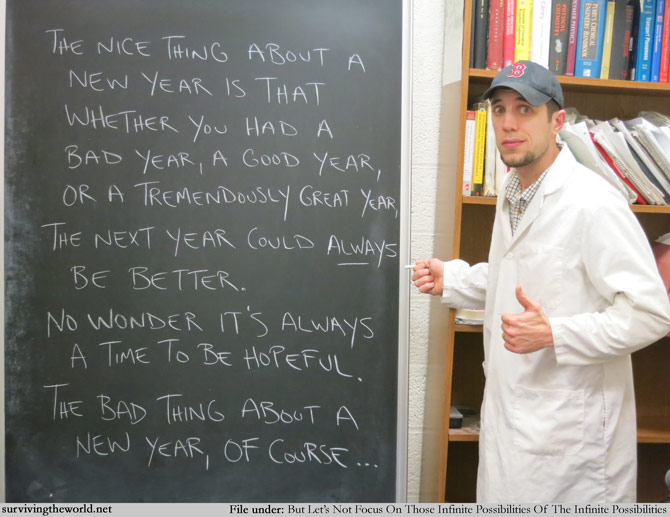 THE NICE THING ABOUT A
NEW YEAR IS THAT
WHETHER YOU HAD A
BAD YEAR, A GOOD YEAR,
OR A TREMENDOUSLY GREAT YEAR,
THE NEXT YEAR COULD ALWAYS
BE BETTER.
NO WONDER IT'S ALWAYS
A TIME TO BE HOPEFUL.
THE BAD THING ABOUT A
NEW YEAR, OF COURSE...
B
PERRY'S CHEMICAL ENGINEERS' HANDBOOK
survivingtheworld.net
File under: But Let's Not Focus On Those Infinite Possibilities Of The Infinite Possibilities